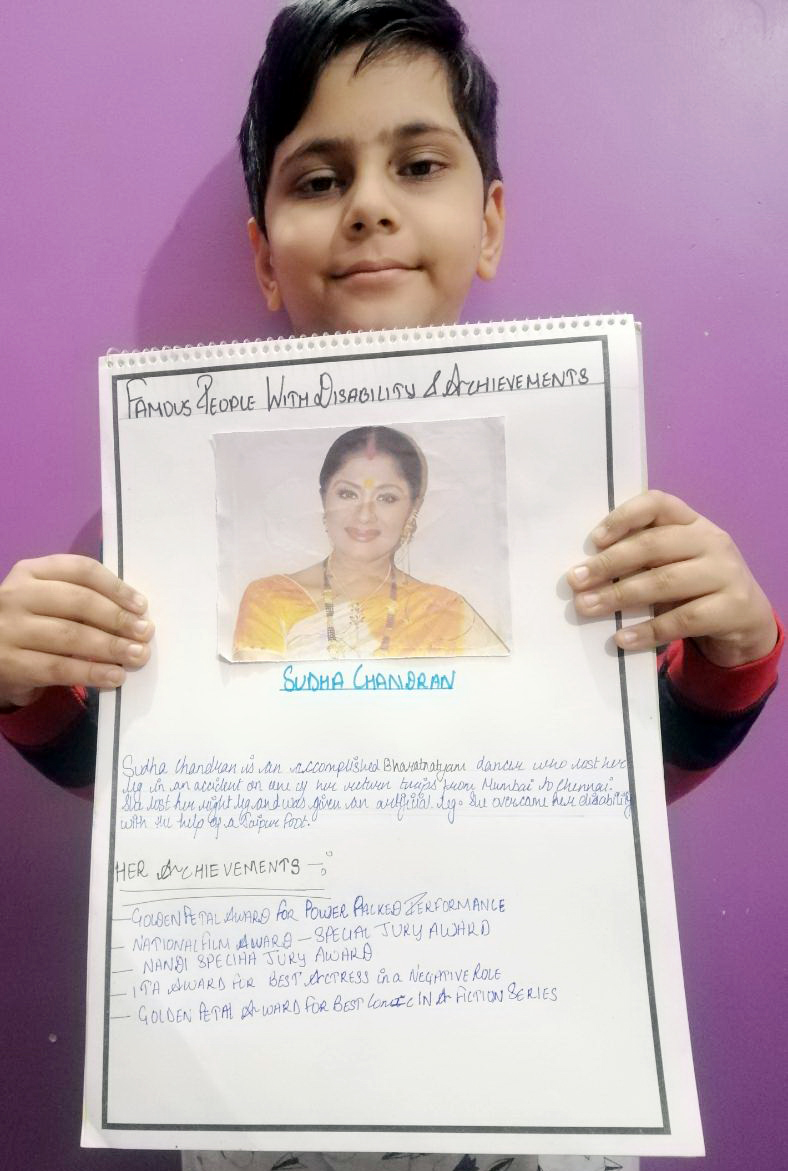 FAMOUS PEOPLE WITH DISABILITY & ACHIEVEMENTS
SUDHA CHANDRAN
Sudha Chandran is an accomplished Bharatnatyam dancer who lost her
leg in an accident on one of her return trips from Mumbai to Chennai.
She lost her right leg and was given an artificial leg. She overcame her disability
with the help of a Jaipur Foot.
HER ACHIEVEMENTS -:
- GOLDEN PETAL AWARD FOR POWER PACKED PERFORMANCE
- NATIONAL FILM AWARD - SPECIAL JURY AWARD
- NANDI SPECIHA JURY AWARD
- ITA AWARD FOR BEST ACTRESS in a NEGATIVE ROLE
- GOLDEN PETAL AWARD FOR BEST IN A FICTION SERIES